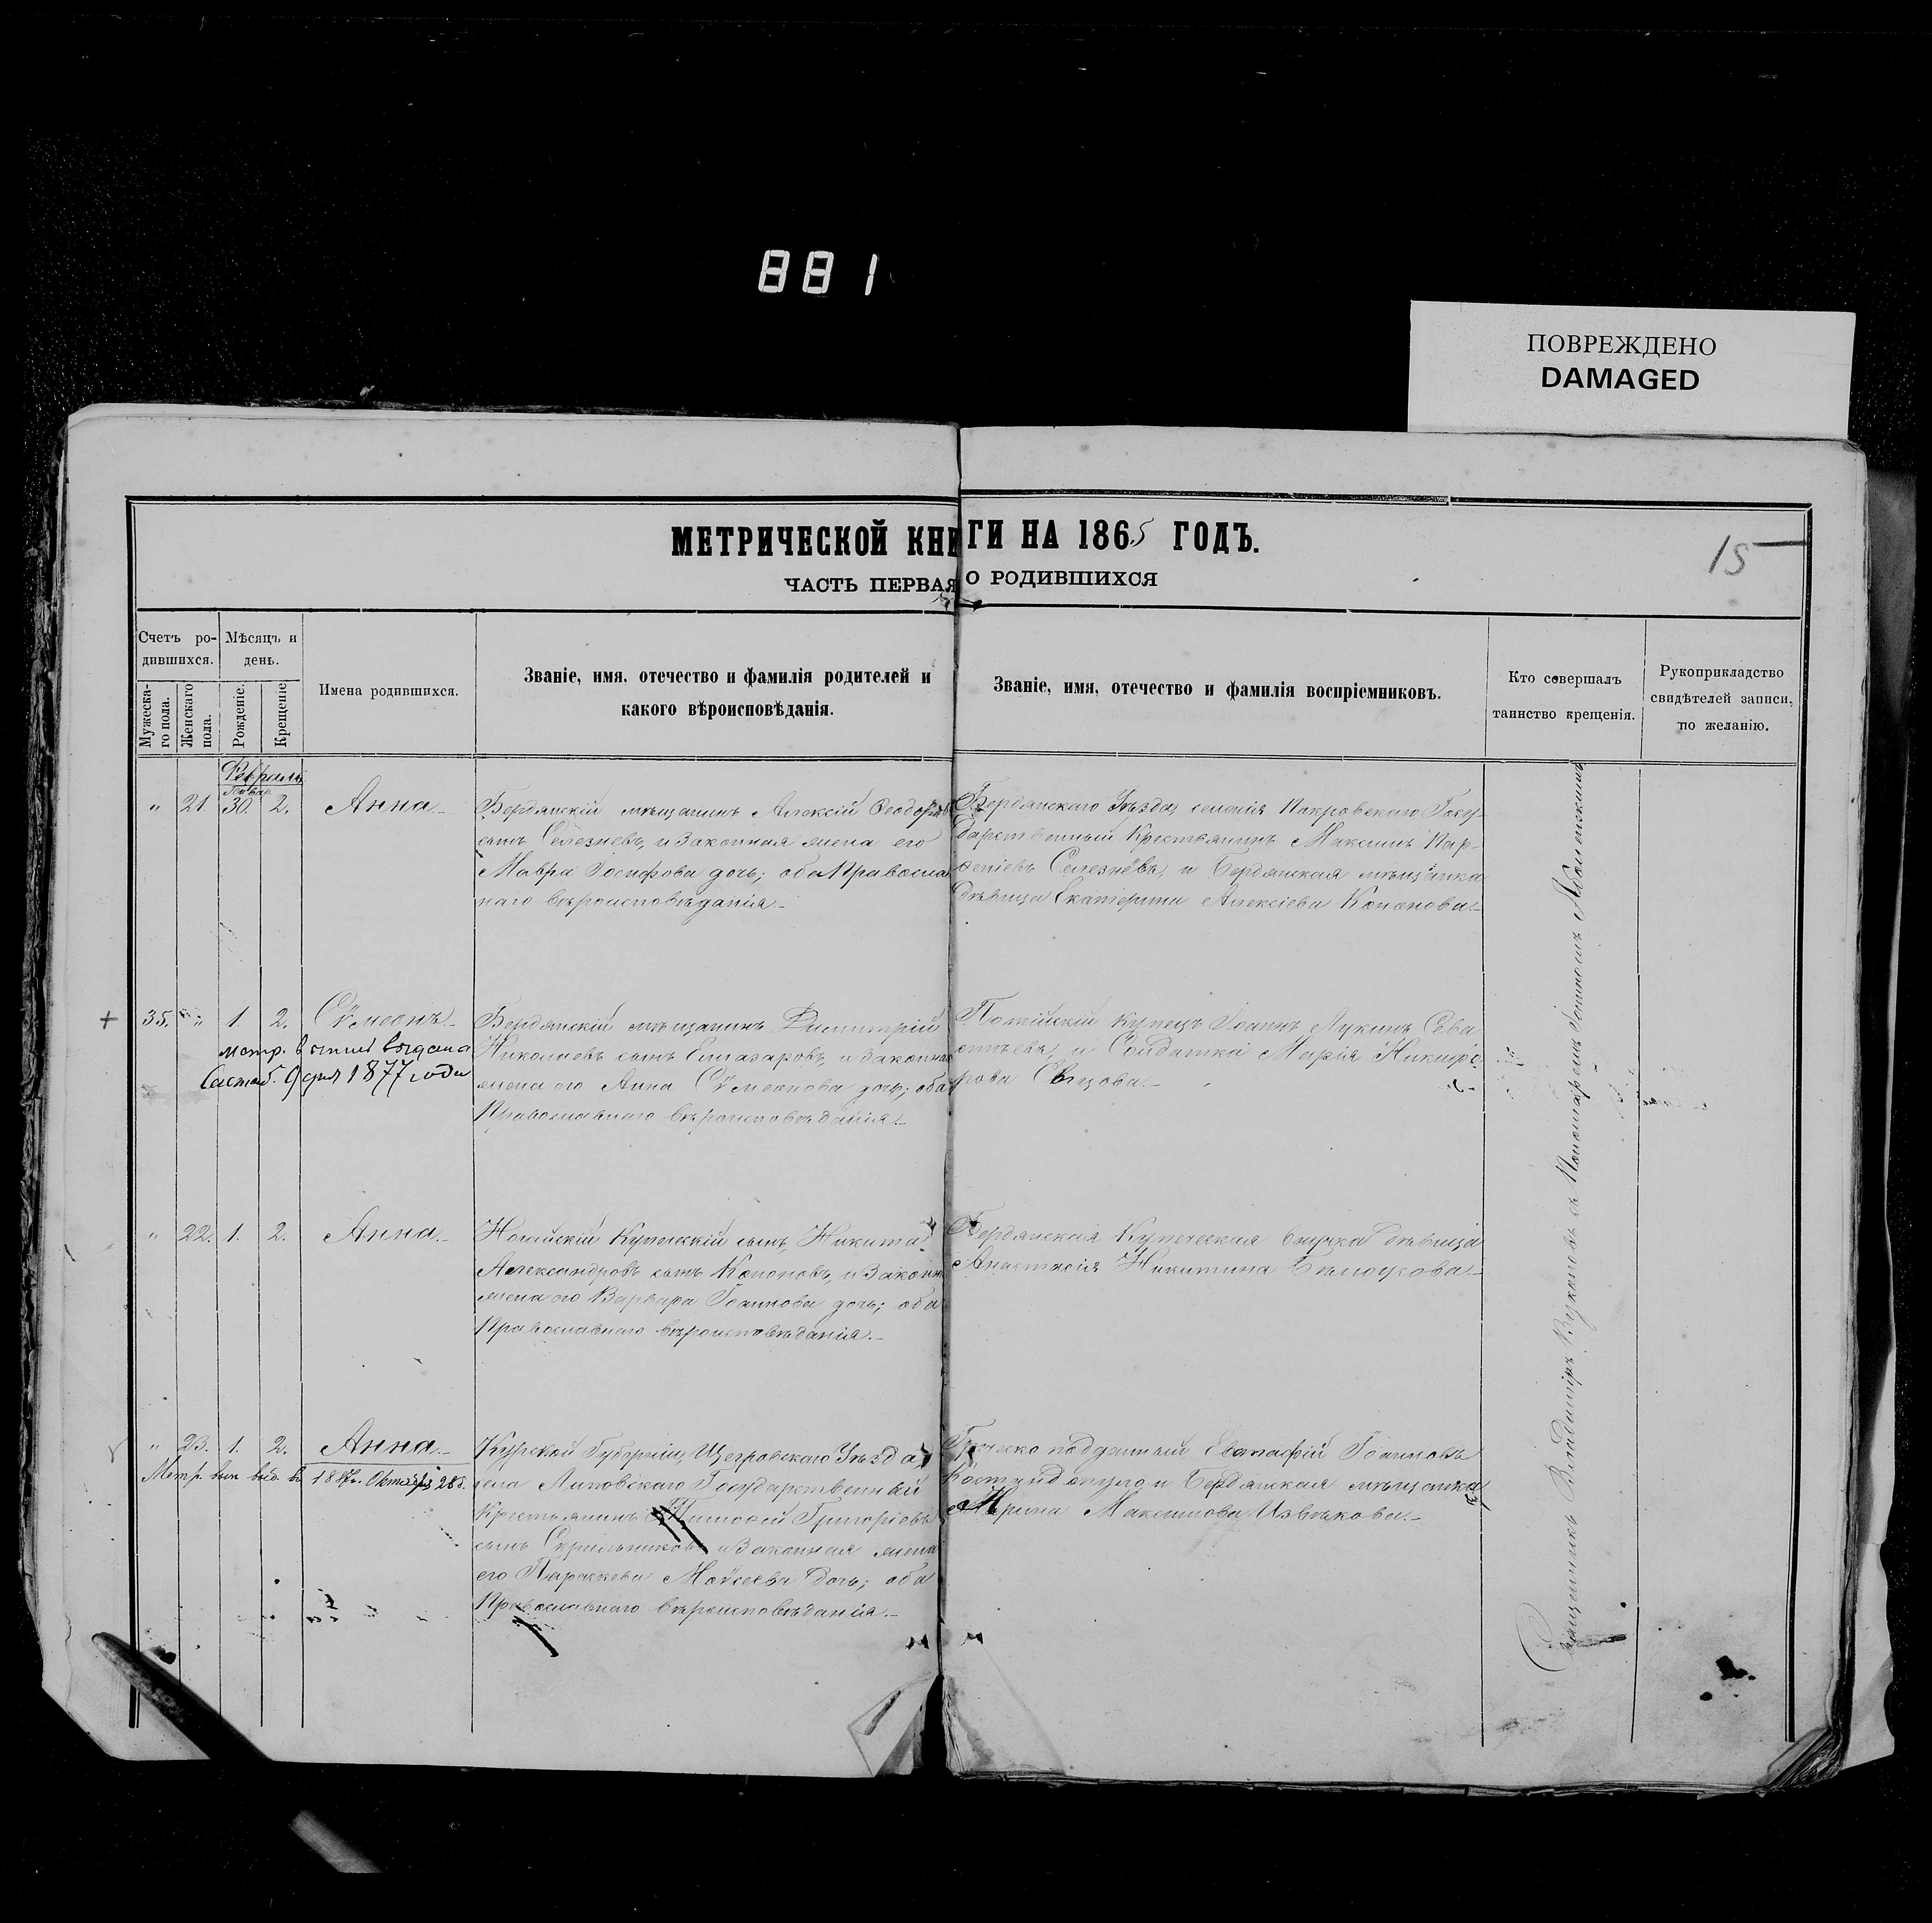 881
ПОВРЕЖДЕНО
DAMAGED
МЕТРИЧЕСКОЙ КНИГИ НА 1865 ГОДЪ.
15
ЧАСТЬ ПЕРВАЯ О РОДИВШИХСЯ
Счетъ ро-
дившихся.
Мужеска-
го пола.
Женскаго
пола.
Мѣсяцъ и
день.
Рожденіе.
Крещеніе
Имена родившихся.
Званіе, имя, отечество и фамилія родителей и
какого вѣроисповѣданія.
Званіе, имя, отечество и фамилія воспріемниковъ.
Кто совершалъ
таинство крещенія.
Рукоприкладство
свидѣтелей записи,
по желанію.
Февраль
Генвар.
" 21 30. 2. Анна.-
Бердянскій мѣщанинъ Алексій Ѳеодоровъ
сынъ Селезневъ, и законная жена его
Мавра Іосифова дочь; оба Православ
наго вѣроисповѣданія.-
Бердянскаго Уѣзда, селенія Покровскаго Госу-
дарственный Крестьянинъ Максимъ Пар-
ѳеніевъ Селезнёвъ, и Бердянская мѣщанка
дѣвица Екатерина Алексіева Кононова.-
35. " 1. 2. Сѵмеонъ.-
метр. выпись выдана
Сентяб. 9 дня 1877 года
Бердянскій мѣщанинъ Димитрій
Николаевъ сынъ Елиазаровъ, и законная
жена его Анна Сѵмеонова дочь; оба
Православнаго вѣроисповѣданія.-
купецъ Іоаннъ Лукинъ Сева
стьевъ, и Солдатка Марія Никифо
рова Свцова.-
" 22. 1. 2. Анна.-
Ногайскій Купеческій сынъ, Никита
Александровъ сынъ Кононовъ, и законн
жена его Варвара Іоаннова дочь; оба
Православнаго вѣроисповѣданія.-
Бердянская Купеческая внучка дѣвица
Анастасія Никитина Бѣлоусова.-
" 23. 1. 2. Анна.-
Метр. вып. выд. въ 188 Октября 28 д.
Курской Губерніи, Щегровскаго Уѣзда
села Липовскаго Государственный
Крестьянинъ Тимоѳей Григоріевъ
сынъ Скрыльниковъ и законная жена
его Параскева Моѵсеева дочь; оба
Православнаго вѣроисповѣданія.-
Греческо подданный Евстафій Іоанновъ
и Бердянская мѣщанка
Марина Максимова Извѣкова.-
Священникъ Владиміръ Вуколовъ съ Пономаремъ Іоанномъ